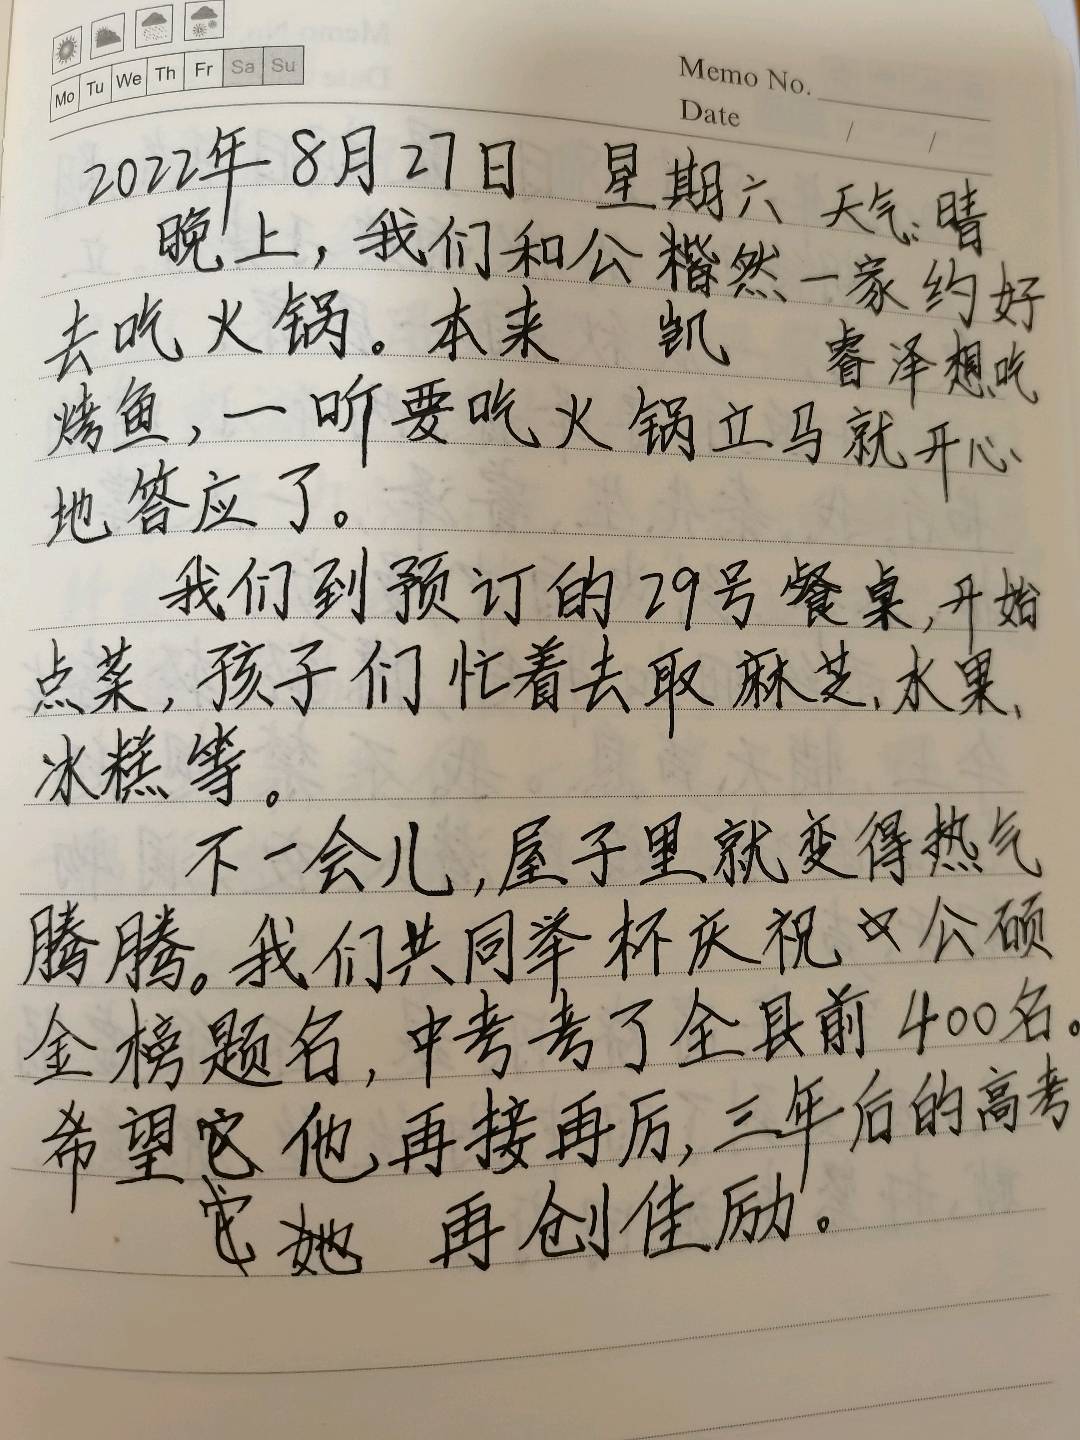 Mo Tu We Th Fr Sa Su
Memo No.
Date / /
2022年8月27日 星期六 天气:晴
晚上,我们和公楷然一家约好
去吃火锅。本来 凯 睿泽想吃
烤鱼,一听要吃火锅立马就开心
地答应了。
我们到预订的29号餐桌,开始
点菜,孩子们忙着去取麻芝、水果、
冰糕等。
不一会儿,屋子里就变得热气
腾腾。我们共同举杯庆祝 公硕
金榜题名,中考考了全县前400名。
希望 他再接再厉,三年后的高考
她 再创佳励。